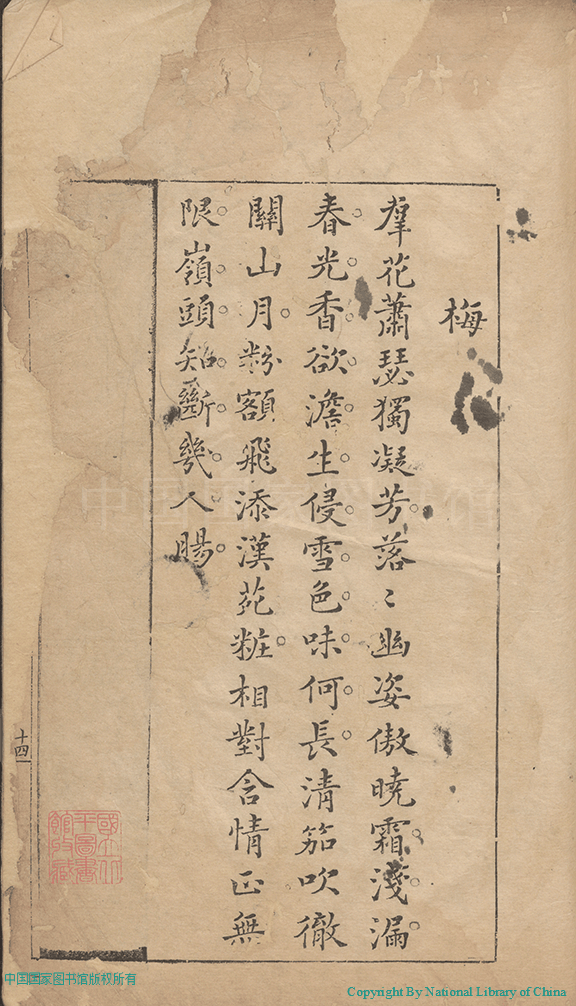 梅
羣花蕭瑟獨凝芳落〻幽姿傲曉霜淺漏
春光香欲澹生侵雪色味何長清笳吹徹
關山月粉額飛添漢苑粧相對含情正無
限嶺頭知斷幾人腸
十四
國立北平圖書館收藏
中国国家图书馆
中国国家图书馆版权所有
Copyright By National Library of China